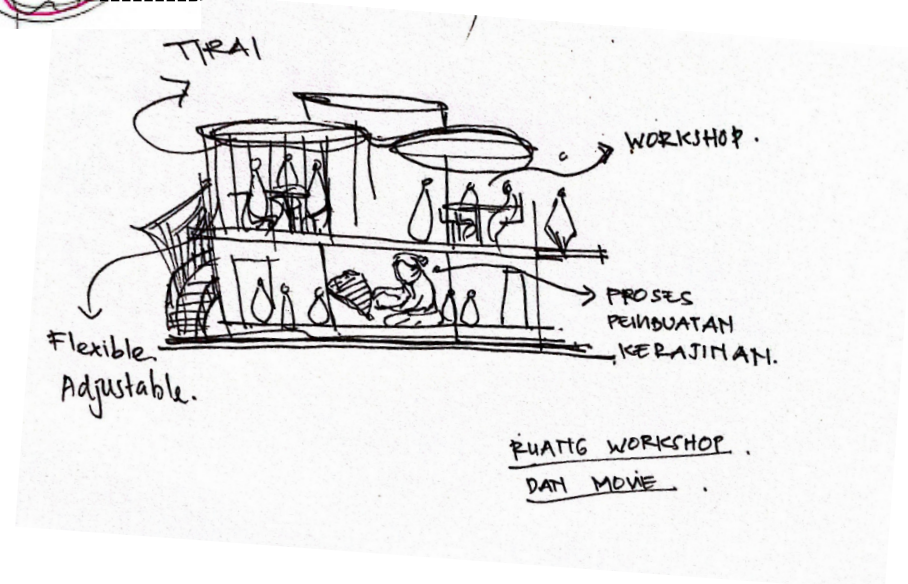 TIRAI
WORKSHOP.
PROSES
PEMBUATAN
KERAJINAN.
Flexible
Adjustable.
RUANG WORKSHOP.
DAN MOVIE.